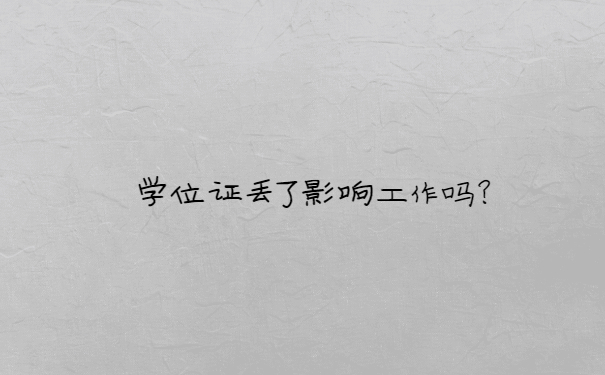 学位证丢了影响工作吗?